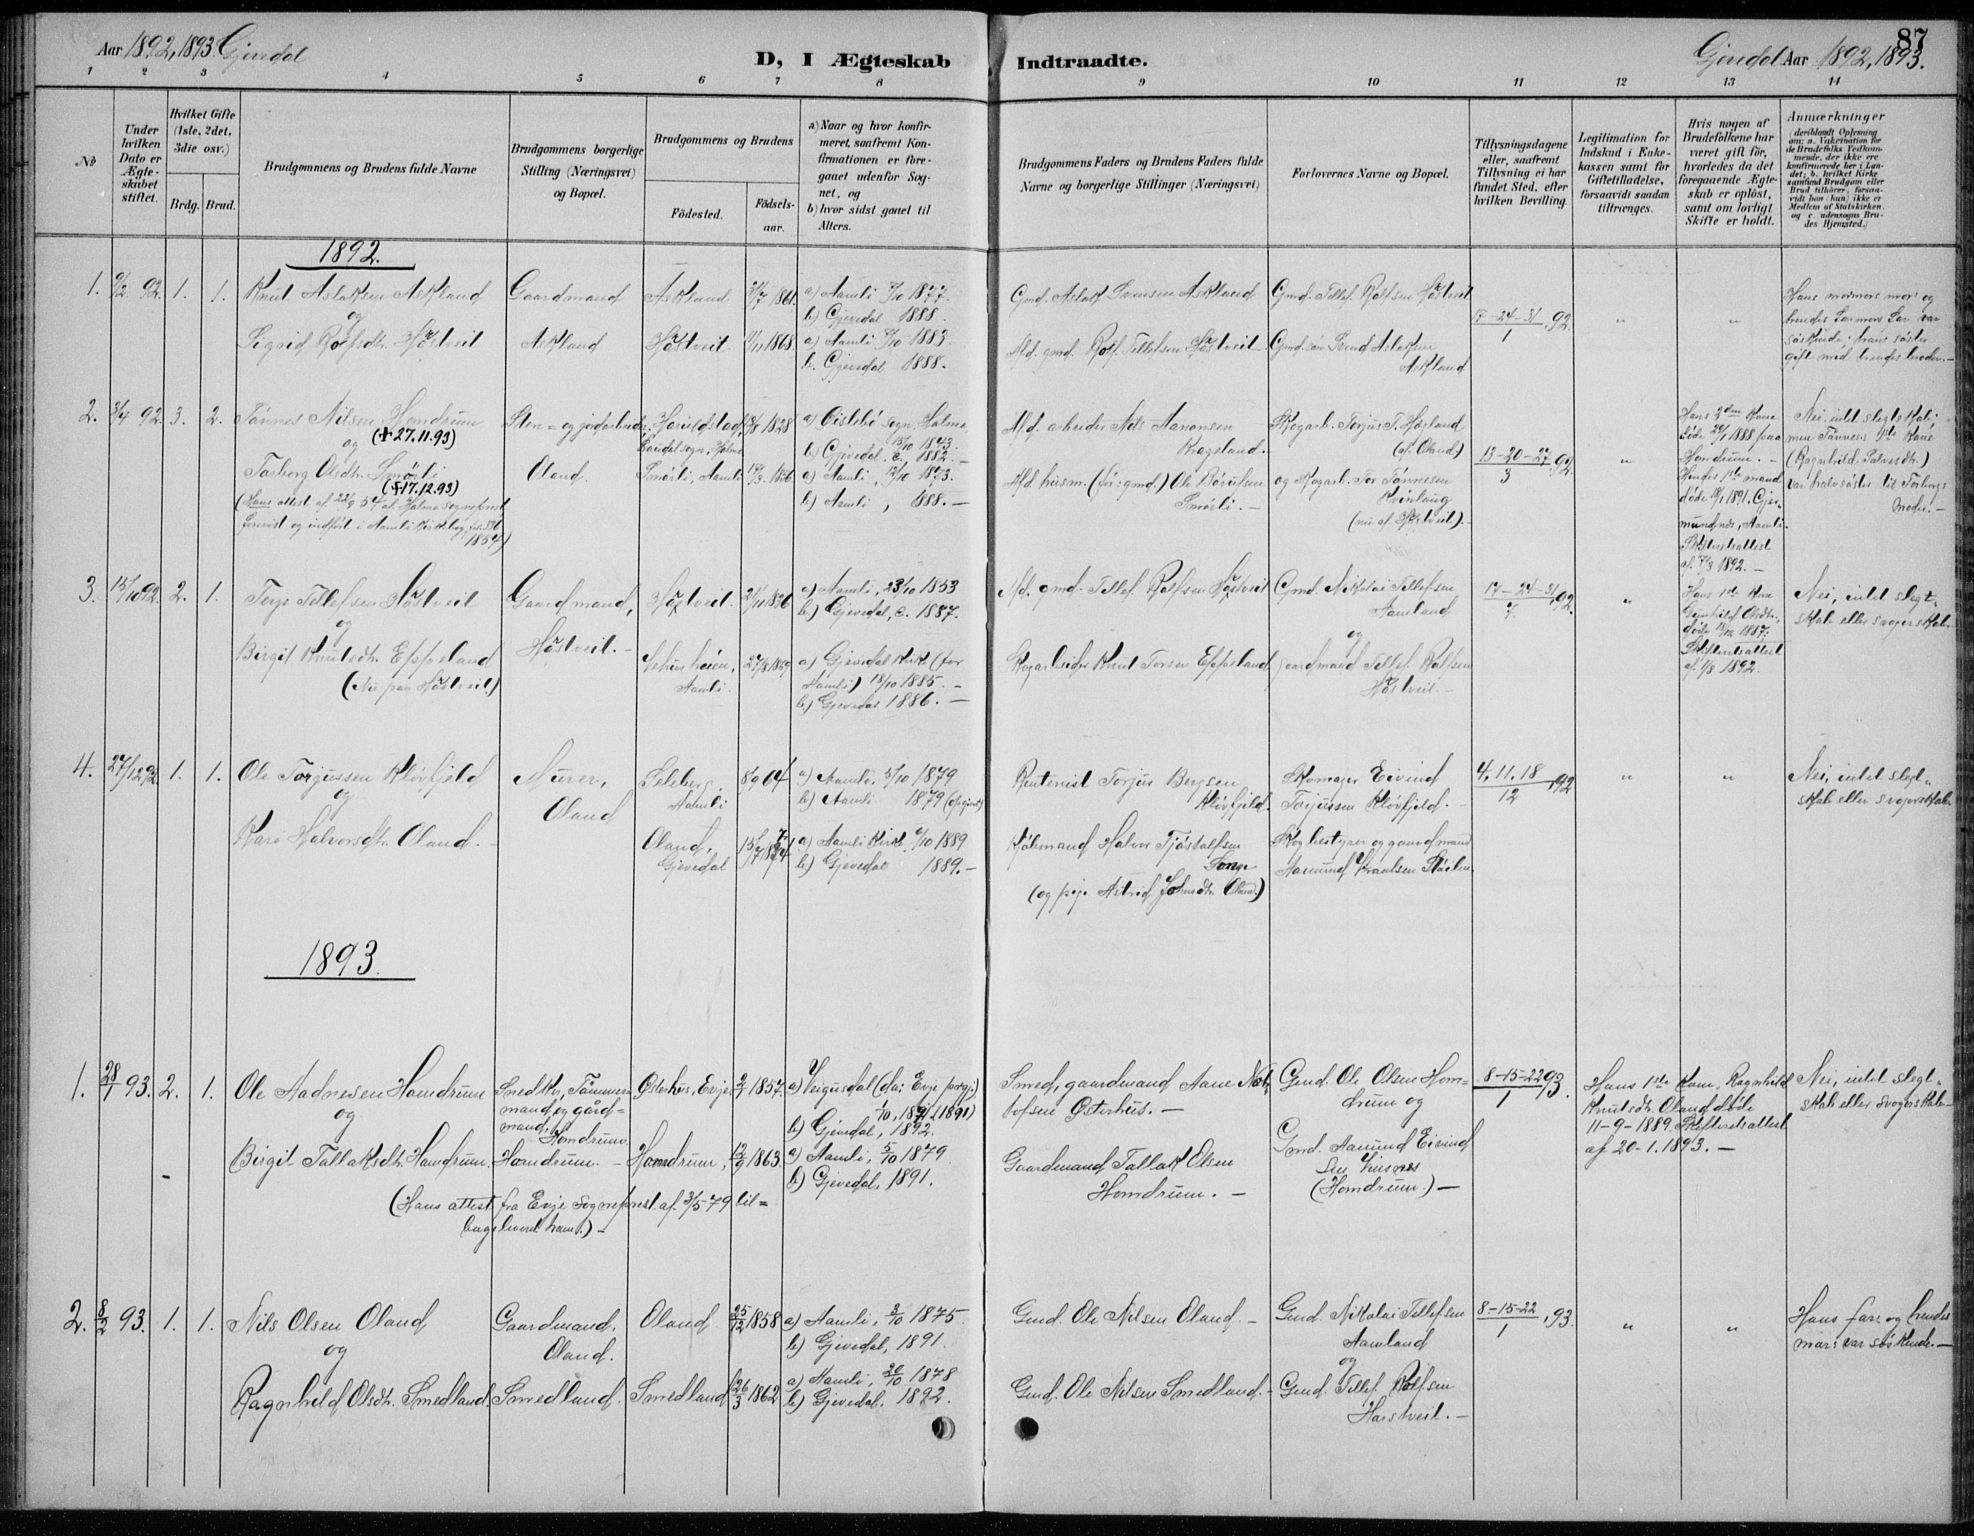 87
Aar 1892, 1893. Gjevedal
D, I Ægteskab Indtraadte.
Gjevedal Aar 1892, 1893.
1 2 3 4 5 6 7 8 9 10 11 12 13 14
No
Under hvilken Dato er Ægteskabet stiftet.
Hvilket Gifte (1ste, 2det, 3die osv.)
Brdg. Brud.
Brudgommens og Brudens fulde Navne
Brudgommens borgerlige Stilling (Næringsvei) og Bopæl.
Brudgommens og Brudens
Födested.
Födsels-aar.
a) Naar og hvor konfir-
meret, saafremt Kon-
firmationen er fore-
gaaet udenfor Sog-
net, og
b) hvor sidst gaaet til
Alters.
Brudgommens Faders og Brudens Faders fulde
Navne og borgerlige Stillinger (Næringsvei)
Forlovernes Navne og Bopæl.
Tillysningsdagene
eller, saafremt
Tillysning ei har
fundet Sted, efter
hvilken Bevilling.
Legitimation for
Indskud i Enke-
kassen samt for
Giftetilladelse,
forsaavidt saadan
tiltrænges.
Hvis nogen af
Brudefolkene har
været gift för,
hvorledes da det
foregaaende Ægte-
skab er oplöst,
samt om lovligt
Skifte er holdt.
Anmærkninger
(deriblandt Oplysning
om: a. Vakcination for
de Brudefolks Vedkom-
mende, der ikke ere
konfirmerede her i Lan-
det; b. hvilket Kirke-
samfund Brudgom eller
Brud tilhörer, forsaa-
vidt han (hun) ikke er
Medlem af Statskirken.
og c. udensogns Bru-
des Hjemsted.)
1892.
1. 9/2 92. 1. 1. Knut Aslaksen Askland
og
Sigrid Rolfsdtr. Höstveit
Gaardmand
Askland
Askland 1861.
Höstveit 1868
a) Aamli 7/10 1877.
b) Gjevedal 1888.
a) Aamli 7/10 1883.
b. Gjevedal 1888.
Gmd. Aslak Svensen Askland
Afd. gmd. Rolf Tellefsen Höstveit
Gmd. Tellef Rolfsen Höstveit
Gmd.sön Svend Aslaksen
Askland
17-24-31/1 92.
" "
Hans mormors mor og
hendes farmors far var
söskende; hans söster
gift med hendes broder.-
2. 3/4 92. 3. 2. Tönnes Nilsen Homdrum
(+ 27.11.93)
og
Torborg Olsdtr. Smörli
(+ 17.12.93)
(Hans attest af 22/9 54 af Holme sognepræst
forevist og indfört i Aamli Kirkebog, fol.
1854)
Sten- og jordarbeider
Oland.
1828
Smörli, Aamli 1836
a) Oislebö sogn, Holme
15/10 1843.
b) Gjevedal. c. 1882.-
a) Aamli, 12/10 1873.
b) Aamli, 1888.-
Afd. arbeider Nils Aanonsen
Kragsland.-
Afd husm. (för: gmd.) Ole Börufsen
Smörli.-
Skogarb. Torjus T. Högland
(af Oland)
og Skogarb. Tor Tönnesen
Kvinlaug
(nu af Höstveit).-
13-20-27/3 92.
"
Hans 2den Kone
döde 28/1 1888 paa
Homdrum.-
Hendes 1ste mand
döde 18/1 1891. Gjer-
mundnes, Aamli.
Skifteretsattest
af 7/3 1892.-
Nei, intet slegtskab;
men Tönneses 1ste Kone
(Ragnhild Salvesdtr.)
var halvsöster til Torborgs
moder.-
3. 15/10 92. 2. 1. Terje Tellefsen Höstveit
og
Birgit Knutsdtr. Eppeland
(Nu paa Höstveit)
Gaardmand,
Höstveit.-
Höstveit. 21/11 1836
Aamli.
a) Aamli, 23/10 1853
b) Gjevedal, c. 1887.
a) Gjevedal Kirke (for
Aamli) 18/10 1885.-
b.) Gjevedal 1886.-
Afd. gmd. Tellef Rolfsen Höstveit
Skogarbeider Knut Torsen Eppeland
Gmd. Nikolai Tellefsen
Aamland
og
Gaardmand Tellef Rolfsen
Höstveit.-
17-24-31/7 92.
"
Hans 1ste Kone
Gunhild Olsdtr.
döde 18/12 1887.
Skifteretsattest
af 1/8 1892.
Nei, intet slegt-
skab eller svogerskab.
4. 27/12 92. 1. 1. Ole Torjussen Klövfjeld
og
Kari Halvorsdtr. Oland.-
Murer,
Oland
Seleberg,
Aamli 8/9 64
Oland,
Gjevedal 15/7 1874
a) Aamli, 5/10 1879
b) Aamli 1879
a) Aamli Kirke 6/10 1889
b) Gjevedal 1889.-
Rentenist Torjus Bergsen
Klövfjeld.
Halvor Tjöstolfsen
Songe
(og pige Astrid Johnsdtr. Oland.)
Skomager Eivind
Torjussen Klövfjeld.-
Skogbestyrer og gaardmand
Aamund
4. 11. 18/12 92
" "
Nei, intet slegt-
skab eller svogerskab.
1893.
1. 28/1 93. 2. 1. Ole Aadnesen Homdrum
og
Birgit Tallaksdtr. Homdrum.
(Hans attest fra Evje Sognepræst af 3/5 79 til-
bageleveret ham.)-
Snedker, Tömmer-
mand og gård-
mand,
Homdrum.
Homdrum.-
Österhus, Evje 1857.
Homdrum, 12/9 1863.
a) Veigusdal (da: Evje prgj.)
b) Gjevedal, 1892.
a) Aamli, 5/10 1879
b) Gjevedal, 1891.
Smed, gaardmand Aane Not-
tofsen Österhus.-
Gaardmand Tallak Olsen
Homdrum.-
Gmd. Ole Olsen Hom-
drum og
Gmd. Aamund Eivind
(Homdrum.)-
8-15-22/1 93.
Hans 1ste Kone, Ragnhild
Knutsdtr. Oland döde
11-9-1889. Skifteretsattest
af 20-1.1893.-
Nei, intet slegt-
skab eller svogerskab.-
2. 8/2 93. 1. 1. Nils Olsen Oland
og
Ragnhild Olsdtr. Smedland.
Gaardmand,
Oland.
Smedland.
Oland 25/12 1858
Smedland 26/3 1862
a) Aamli, 3/10 1875.
b) Gjevedal, 1891.
a) Aamli, 20/10 1878
b) Gjevedal, 1892.
Gmd. Ole Nilsen Oland.-
Gmd. Ole Nilsen Smedland.-
Gmd. Nikolai Tellefsen
Aamland
og
Gmd. Tellef Rolfsen
Harstveit.-
8-15-22/1, 93.
" "
Hans far og hendes
mor var söskende.-